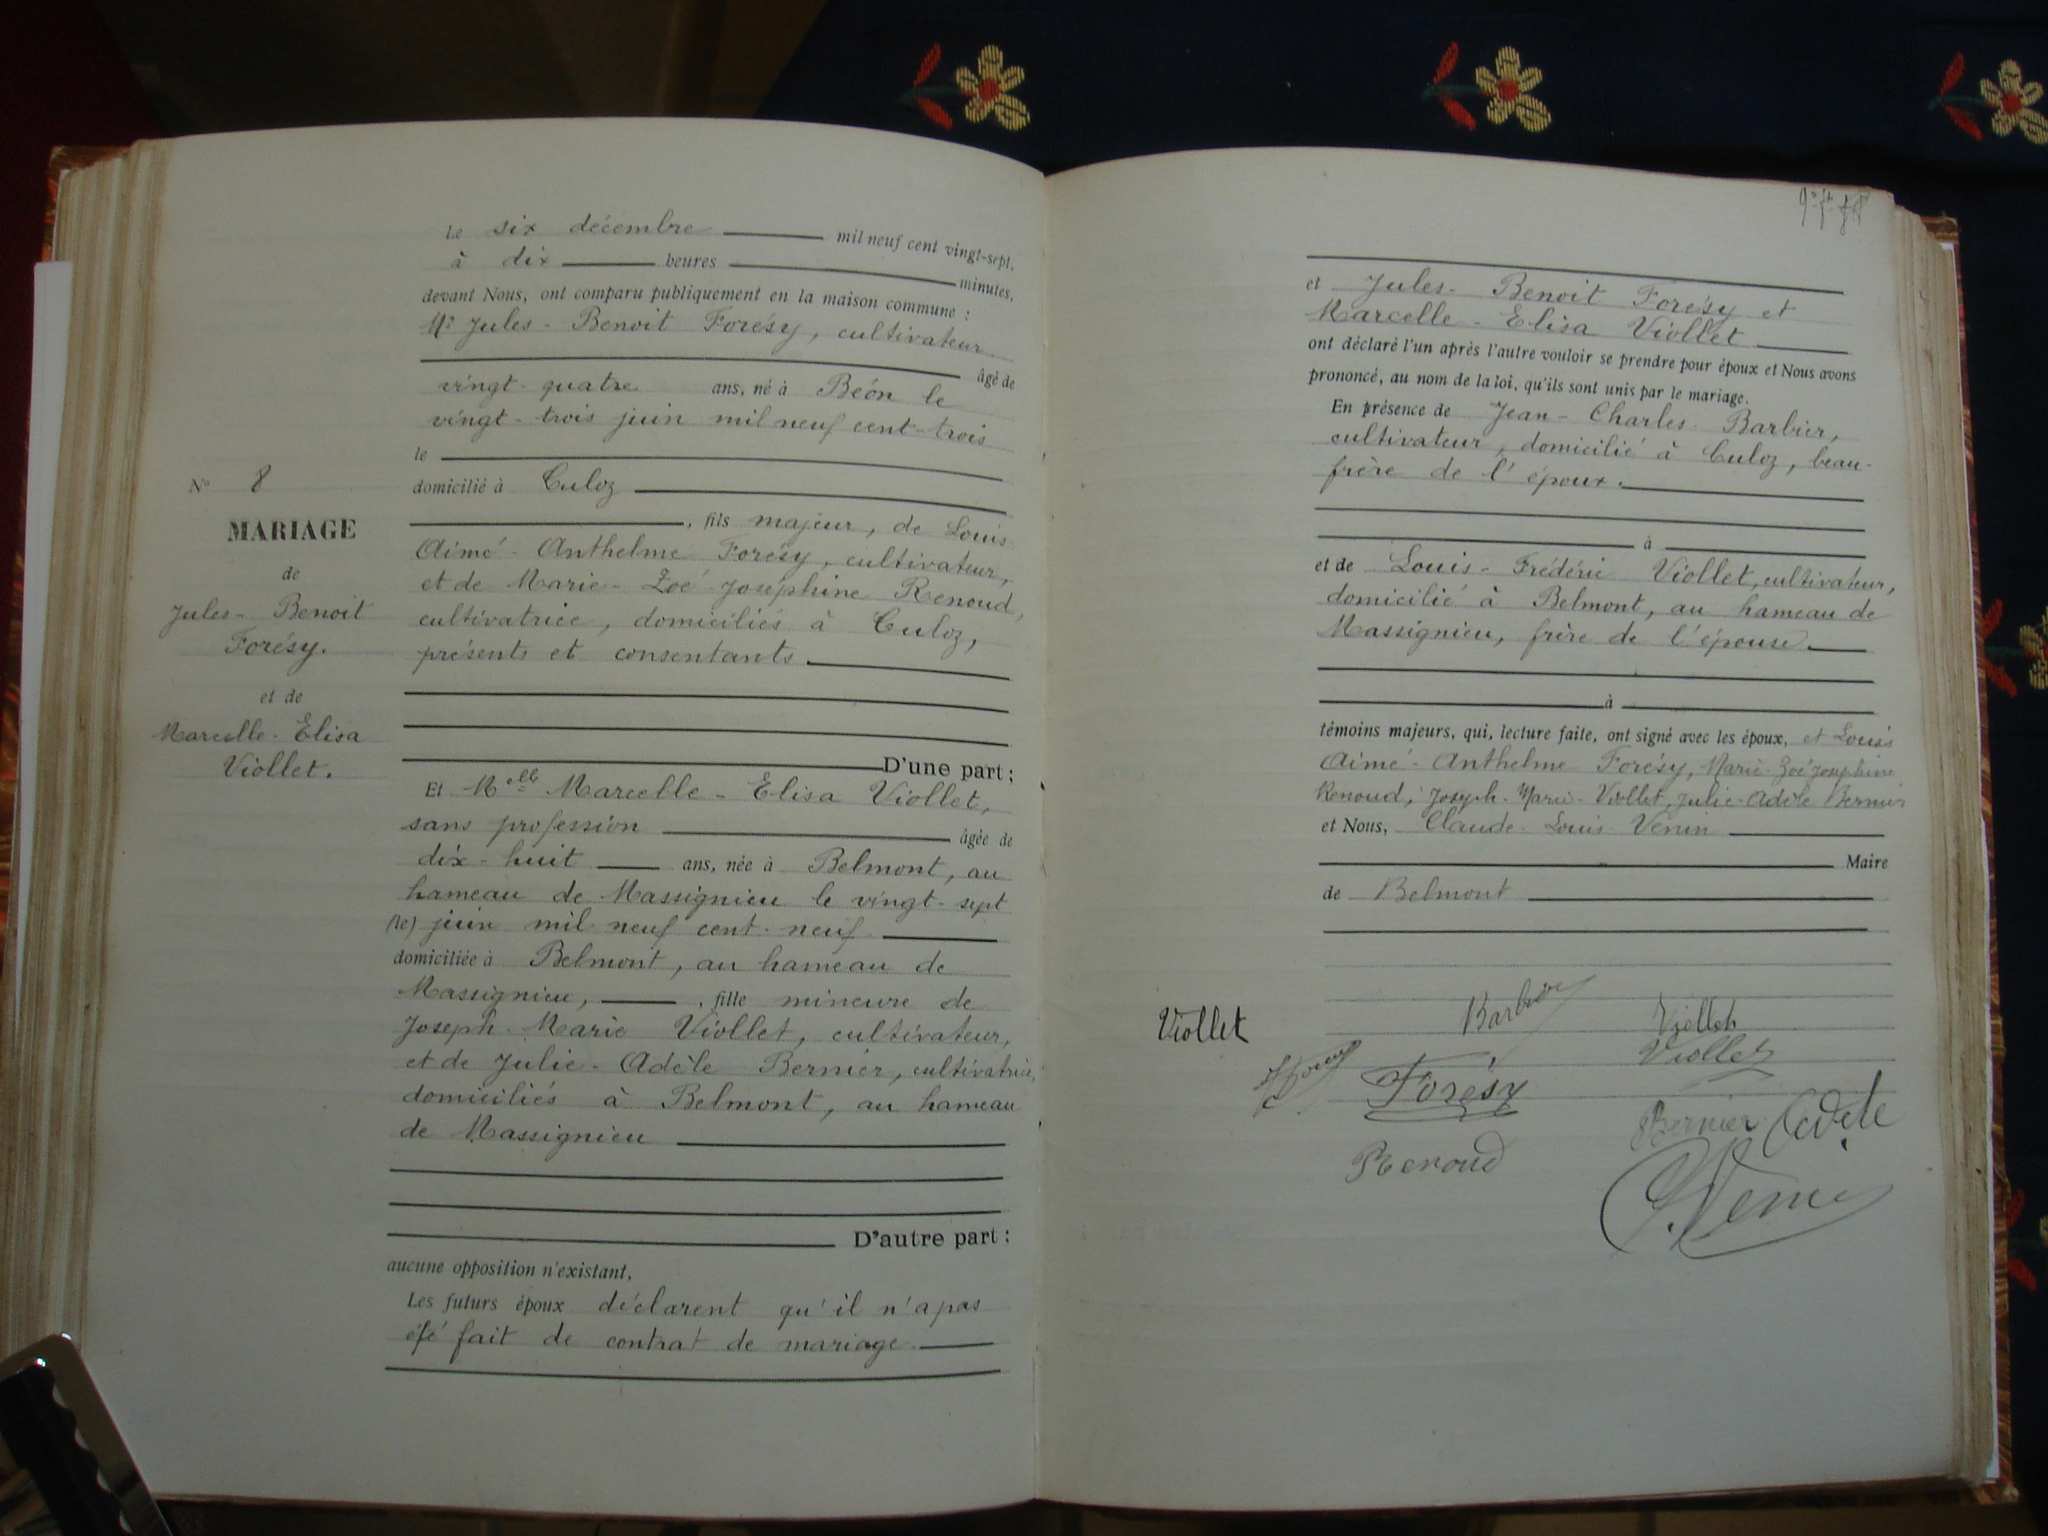 Le six décembre mil neuf cent vingt-sept,
à dix heures minutes,
devant Nous, ont comparu publiquement en la maison commune :
Mr Jules-Benoit Forésy, cultivateur
âgé de
vingt-quatre ans, né à Béon le
vingt-trois juin mil neuf cent-trois
le
domicilié à Culoz
, fils majeur, de Louis
Aimé-Anthelme Forésy, cultivateur,
et de Marie-Zoé-Joséphine Renoud,
cultivatrice, domiciliés à Culoz,
présents et consentants
D'une part ;
Et Melle Marcelle-Elisa Viollet,
sans profession âgée de
dix-huit ans, née à Belmont, au
hameau de Massignieu le vingt-sept
(le) juin mil neuf cent-neuf
domiciliée à Belmont, au hameau de
Massignieu, , fille mineure de
Joseph-Marie Viollet, cultivateur,
et de Julie-Adèle Bernier, cultivatrice,
domiciliés à Belmont, au hameau
de Massignieu
D'autre part :
aucune opposition n'existant,
Les futurs époux déclarent qu'il n'a pas
été fait de contrat de mariage.
N° 8
MARIAGE
de
Jules-Benoit
Forésy.
et de
Marcelle-Elisa
Viollet.
et Jules-Benoit Forésy et
Marcelle-Elisa Viollet
ont déclaré l'un après l'autre vouloir se prendre pour époux et Nous avons
prononcé, au nom de la loi, qu'ils sont unis par le mariage.
En présence de Jean-Charles Barbier,
cultivateur, domicilié à Culoz, beau-
frère de l'époux.
à
et de Louis-Frédéric Viollet, cultivateur,
domicilié à Belmont, au hameau de
Massignieu, frère de l'épouse.
à
témoins majeurs, qui, lecture faite, ont signé avec les époux, et Louis
Aimé-Anthelme Forésy, Marie-Zoé Joséphine
Renoud, Joseph-Marie-Viollet, Julie-Adèle Bernier
et Nous, Claude-Louis Venin
Maire
de Belmont
Viollet Barbier Viollet
Viollet
Forésy
Bernier Adèle
Renoud